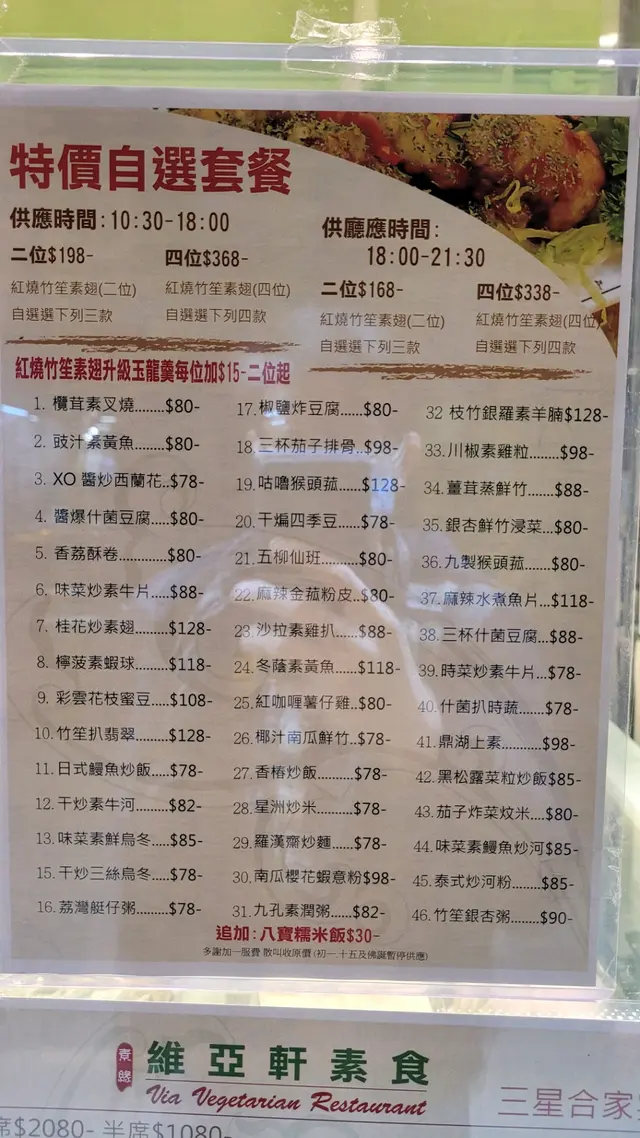 特價自選套餐
供應時間:10:30-18:00
二位$198-
四位$368-
紅燒竹笙素翅(二位)
紅燒竹笙素翅(四位)
自選選下列三款
自選選下列四款
供廳應時間:
18:00-21:30
二位$168-
四位$338-
紅燒竹笙素翅(二位)
紅燒竹笙素翅(四位)
自選選下列三款
自選選下列四款
紅燒竹笙素翅升級玉龍羹每位加$15-二位起
1. 欖茸素叉燒........$80-
2. 豉汁素黃魚........$80-
3. XO 醬炒西蘭花..$78-
4. 醬爆什菌豆腐.....$80-
5. 香荔酥卷............$80-
6. 味菜炒素牛片.....$88-
7. 桂花炒素翅.........$128-
8. 檸菠素蝦球.........$118-
9. 彩雲花枝蜜豆.....$108-
10. 竹笙扒翡翠.........$128-
11. 日式鰻魚炒飯.....$78-
12. 干炒素牛河.........$82-
13. 味菜素鮮烏冬.....$85-
15. 干炒三絲烏冬.....$78-
16. 荔灣艇仔粥.........$78-
17. 椒鹽炸豆腐......$80-
18. 三杯茄子排骨..$98-
19. 咕嚕猴頭菰......$128-
20. 干煸四季豆......$78-
21. 五柳仙班..........$80-
22. 麻辣金菰粉皮..$80-
23. 沙拉素雞扒......$88-
24. 冬蔭素黃魚......$118-
25. 紅咖喱薯仔雞..$80-
26. 椰汁南瓜鮮竹..$78-
27. 香椿炒飯..........$78-
28. 星洲炒米..........$78-
29. 羅漢齋炒麵......$78-
30. 南瓜櫻花蝦意粉$98-
31. 九孔素潤粥......$82-
32 枝竹銀羅素羊腩$128-
33. 川椒素雞粒.......$98-
34. 薑茸蒸鮮竹......$88-
35. 銀杏鮮竹浸菜...$80-
36. 九製猴頭菰......$80-
37. 麻辣水煮魚片...$118-
38. 三杯什菌豆腐...$88-
39. 時菜炒素牛片...$78-
40. 什菌扒時蔬.......$78-
41. 鼎湖上素..........$98-
42. 黑松露菜粒炒飯$85-
43. 茄子炸菜炆米....$80-
44. 味菜素鰻魚炒河$85-
45. 泰式炒河粉.......$85-
46. 竹笙銀杏粥.......$90-
追加:八寶糯米飯$30-
多謝加一服費 散叫收原價 (初一.十五及佛誕暫停供應)
素緣
維亞軒素食
Via Vegetarian Restaurant
三星合家
席$2080- 半席$1080-